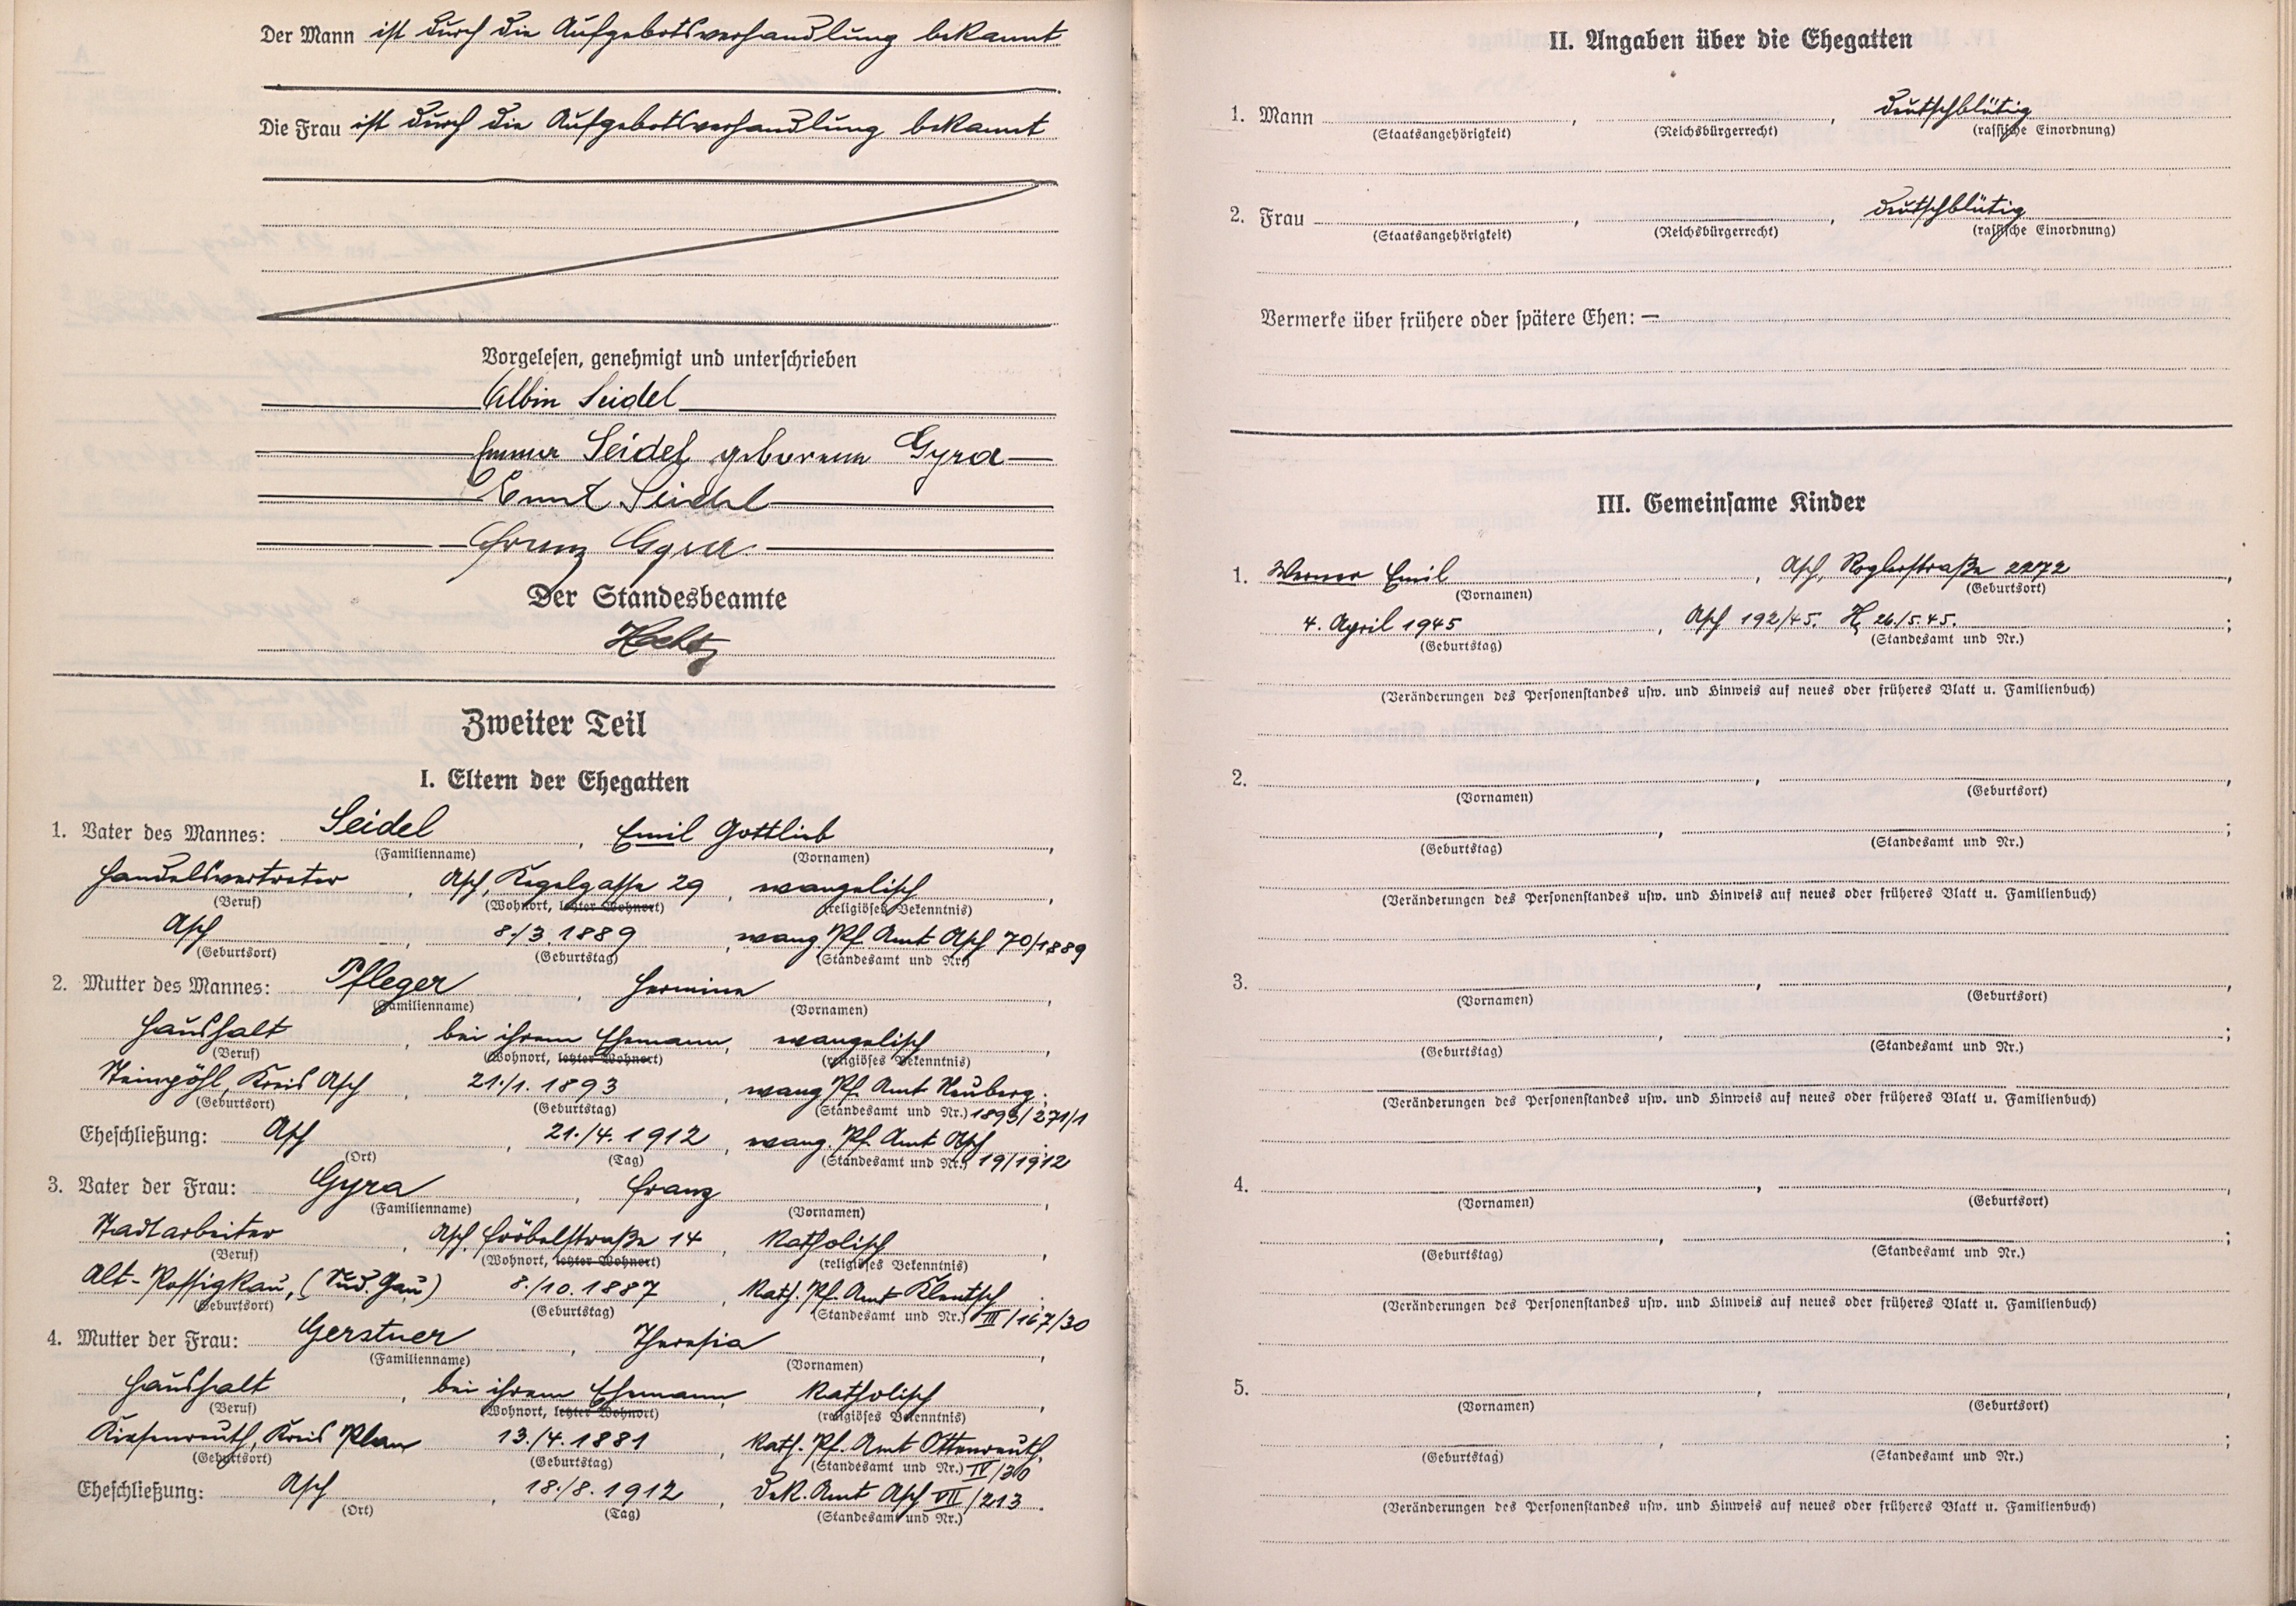 Der Mann ist durch die Aufgebotsverhandlung bekannt
Die Frau ist durch die Aufgebotsverhandlung bekannt
Vorgelesen, genehmigt und unterschrieben
Albin Seidel
Emma Seidel geborene Gyra
Ernst Seidel
Franz Gyra
Der Standesbeamte
Zweiter Teil
I. Eltern der Ehegatten
1. Vater des Mannes: Seidel, Emil Gottlieb,
(Familienname) (Vornamen)
Handelsvertreter, Asch, Kegelgasse 29, evangelisch,
(Beruf) (Wohnort, letzter Wohnort) (religiöses Bekenntnis)
Asch, 8./3. 1889, evang. Pf. Amt Asch 70/1889
(Geburtsort) (Geburtstag) (Standesamt und Nr.)
2. Mutter des Mannes: Pfleger, Hermine,
(Familienname) (Vornamen)
Haushalt, bei ihrem Ehemann, evangelisch,
(Beruf) (Wohnort, letzter Wohnort) (religiöses Bekenntnis)
Steinpöhl, Kreis Asch, 21./1. 1893, evang Pf. Amt Neuberg;
(Geburtsort) (Geburtstag) (Standesamt und Nr.) 1893/271/1
Eheschließung: Asch, 21./4. 1912, evang. Pf. Amt Asch
(Ort) (Tag) (Standesamt und Nr.) 19/1912
3. Vater der Frau: Gyra, Franz,
(Familienname) (Vornamen)
Stadtarbeiter, Asch, Fröbelstraße 14, katholisch,
(Beruf) (Wohnort, letzter Wohnort) (religiöses Bekenntnis)
Alt-Rossigkau, (Sud. Gau) 8./10. 1887, kath. Pf. Amt Klentsch;
(Geburtsort) (Geburtstag) (Standesamt und Nr.) III/167/30
4. Mutter der Frau: Gerstner, Theresia,
(Familienname) (Vornamen)
Haushalt, bei ihrem Ehemann, katholisch,
(Beruf) (Wohnort, letzter Wohnort) (religiöses Bekenntnis)
Kiesenreuth, Kreis Plan 13./4. 1881, kath. Pf. Amt Ottenreuth;
(Geburtsort) (Geburtstag) (Standesamt und Nr.) IV/30
Eheschließung: Asch, 18./8. 1912, Dek. Amt Asch VII/213.
(Ort) (Tag) (Standesamt und Nr.)
II. Angaben über die Ehegatten
1. Mann , , deutschblütig
(Staatsangehörigkeit) (Reichsbürgerrecht) (rassische Einordnung)
2. Frau , , deutschblütig
(Staatsangehörigkeit) (Reichsbürgerrecht) (rassische Einordnung)
Vermerke über frühere oder spätere Ehen: —
III. Gemeinsame Kinder
1. Werner Emil, Asch, Roglerstraße 2272,
(Vornamen) (Geburtsort)
4. April 1945, Asch 192/45. H, 26./5. 45. ;
(Geburtstag) (Standesamt und Nr.)
(Veränderungen des Personenstandes usw. und Hinweis auf neues oder früheres Blatt u. Familienbuch)
2. , ,
(Vornamen) (Geburtsort)
, ;
(Geburtstag) (Standesamt und Nr.)
(Veränderungen des Personenstandes usw. und Hinweis auf neues oder früheres Blatt u. Familienbuch)
3. , ,
(Vornamen) (Geburtsort)
, ;
(Geburtstag) (Standesamt und Nr.)
(Veränderungen des Personenstandes usw. und Hinweis auf neues oder früheres Blatt u. Familienbuch)
4. , ,
(Vornamen) (Geburtsort)
, ;
(Geburtstag) (Standesamt und Nr.)
(Veränderungen des Personenstandes usw. und Hinweis auf neues oder früheres Blatt u. Familienbuch)
5. , ,
(Vornamen) (Geburtsort)
, ;
(Geburtstag) (Standesamt und Nr.)
(Veränderungen des Personenstandes usw. und Hinweis auf neues oder früheres Blatt u. Familienbuch)